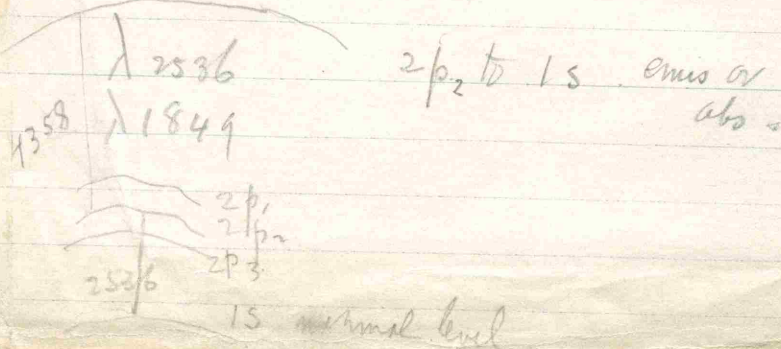 λ 2536 2p₂ to 1s emis or
λ 1849 abs
4358
2p₁
2p₂
2p₃
2536
1S normal level